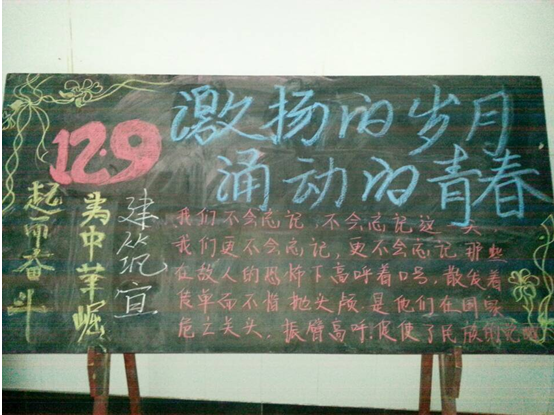 12.9
激扬的岁月
涌动的青春
为中华崛
起而奋斗
建筑宣
我们不会忘记,不会忘记这一天
我们更不会忘记,更不会忘记那些
在敌人的恐怖下高呼着口号,散发着
传单而不惜抛头颅 是他们在国家
危亡关头,振臂高呼,促使了民族的觉